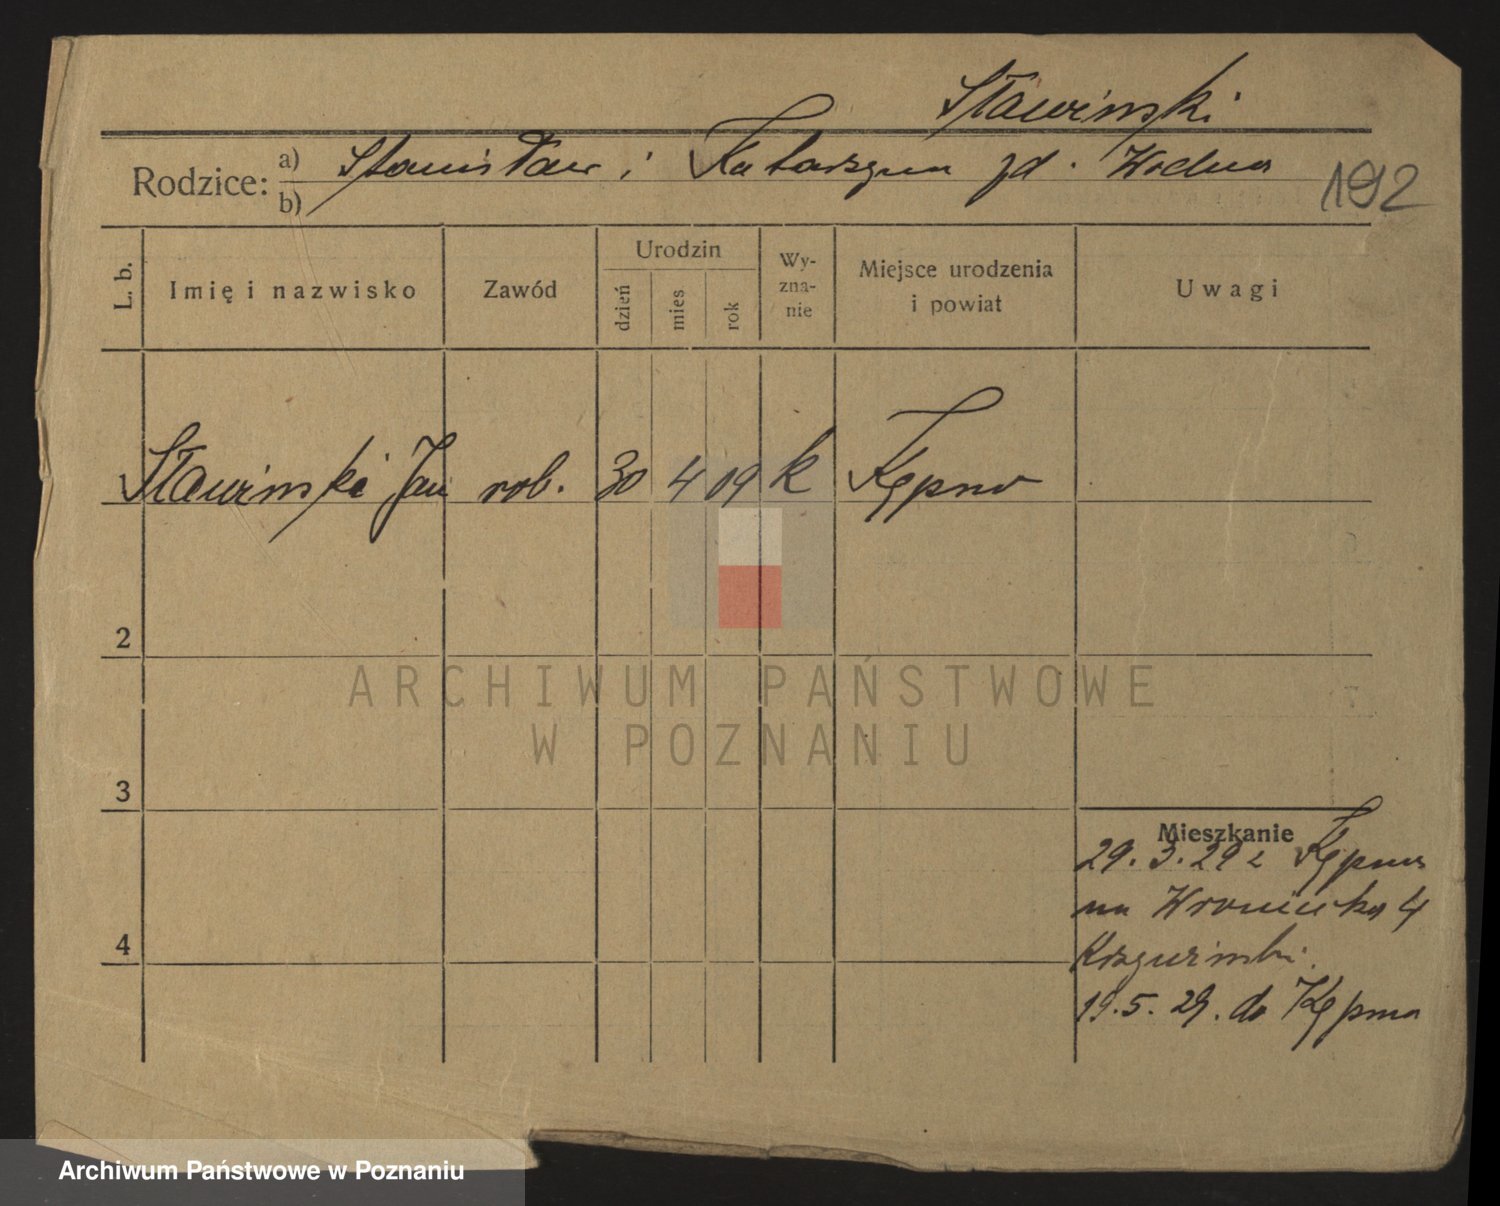 Sławinski
Rodzice: a) Stanisław i Katarzyna zd. Wodna
b)
192
L. b. Imię i nazwisko Zawód Urodzin dzień mies rok Wyznanie Miejsce urodzenia i powiat Uwagi
1 Sławinski Jan rob. 30 4 09 k Kępno
2
ARCHIWUM PAŃSTWOWE
W POZNANIU
3
Mieszkanie
29.3.29 z Kępna
na Wroniecka 4
4
19.5.29. do Kępna
Archiwum Państwowe w Poznaniu